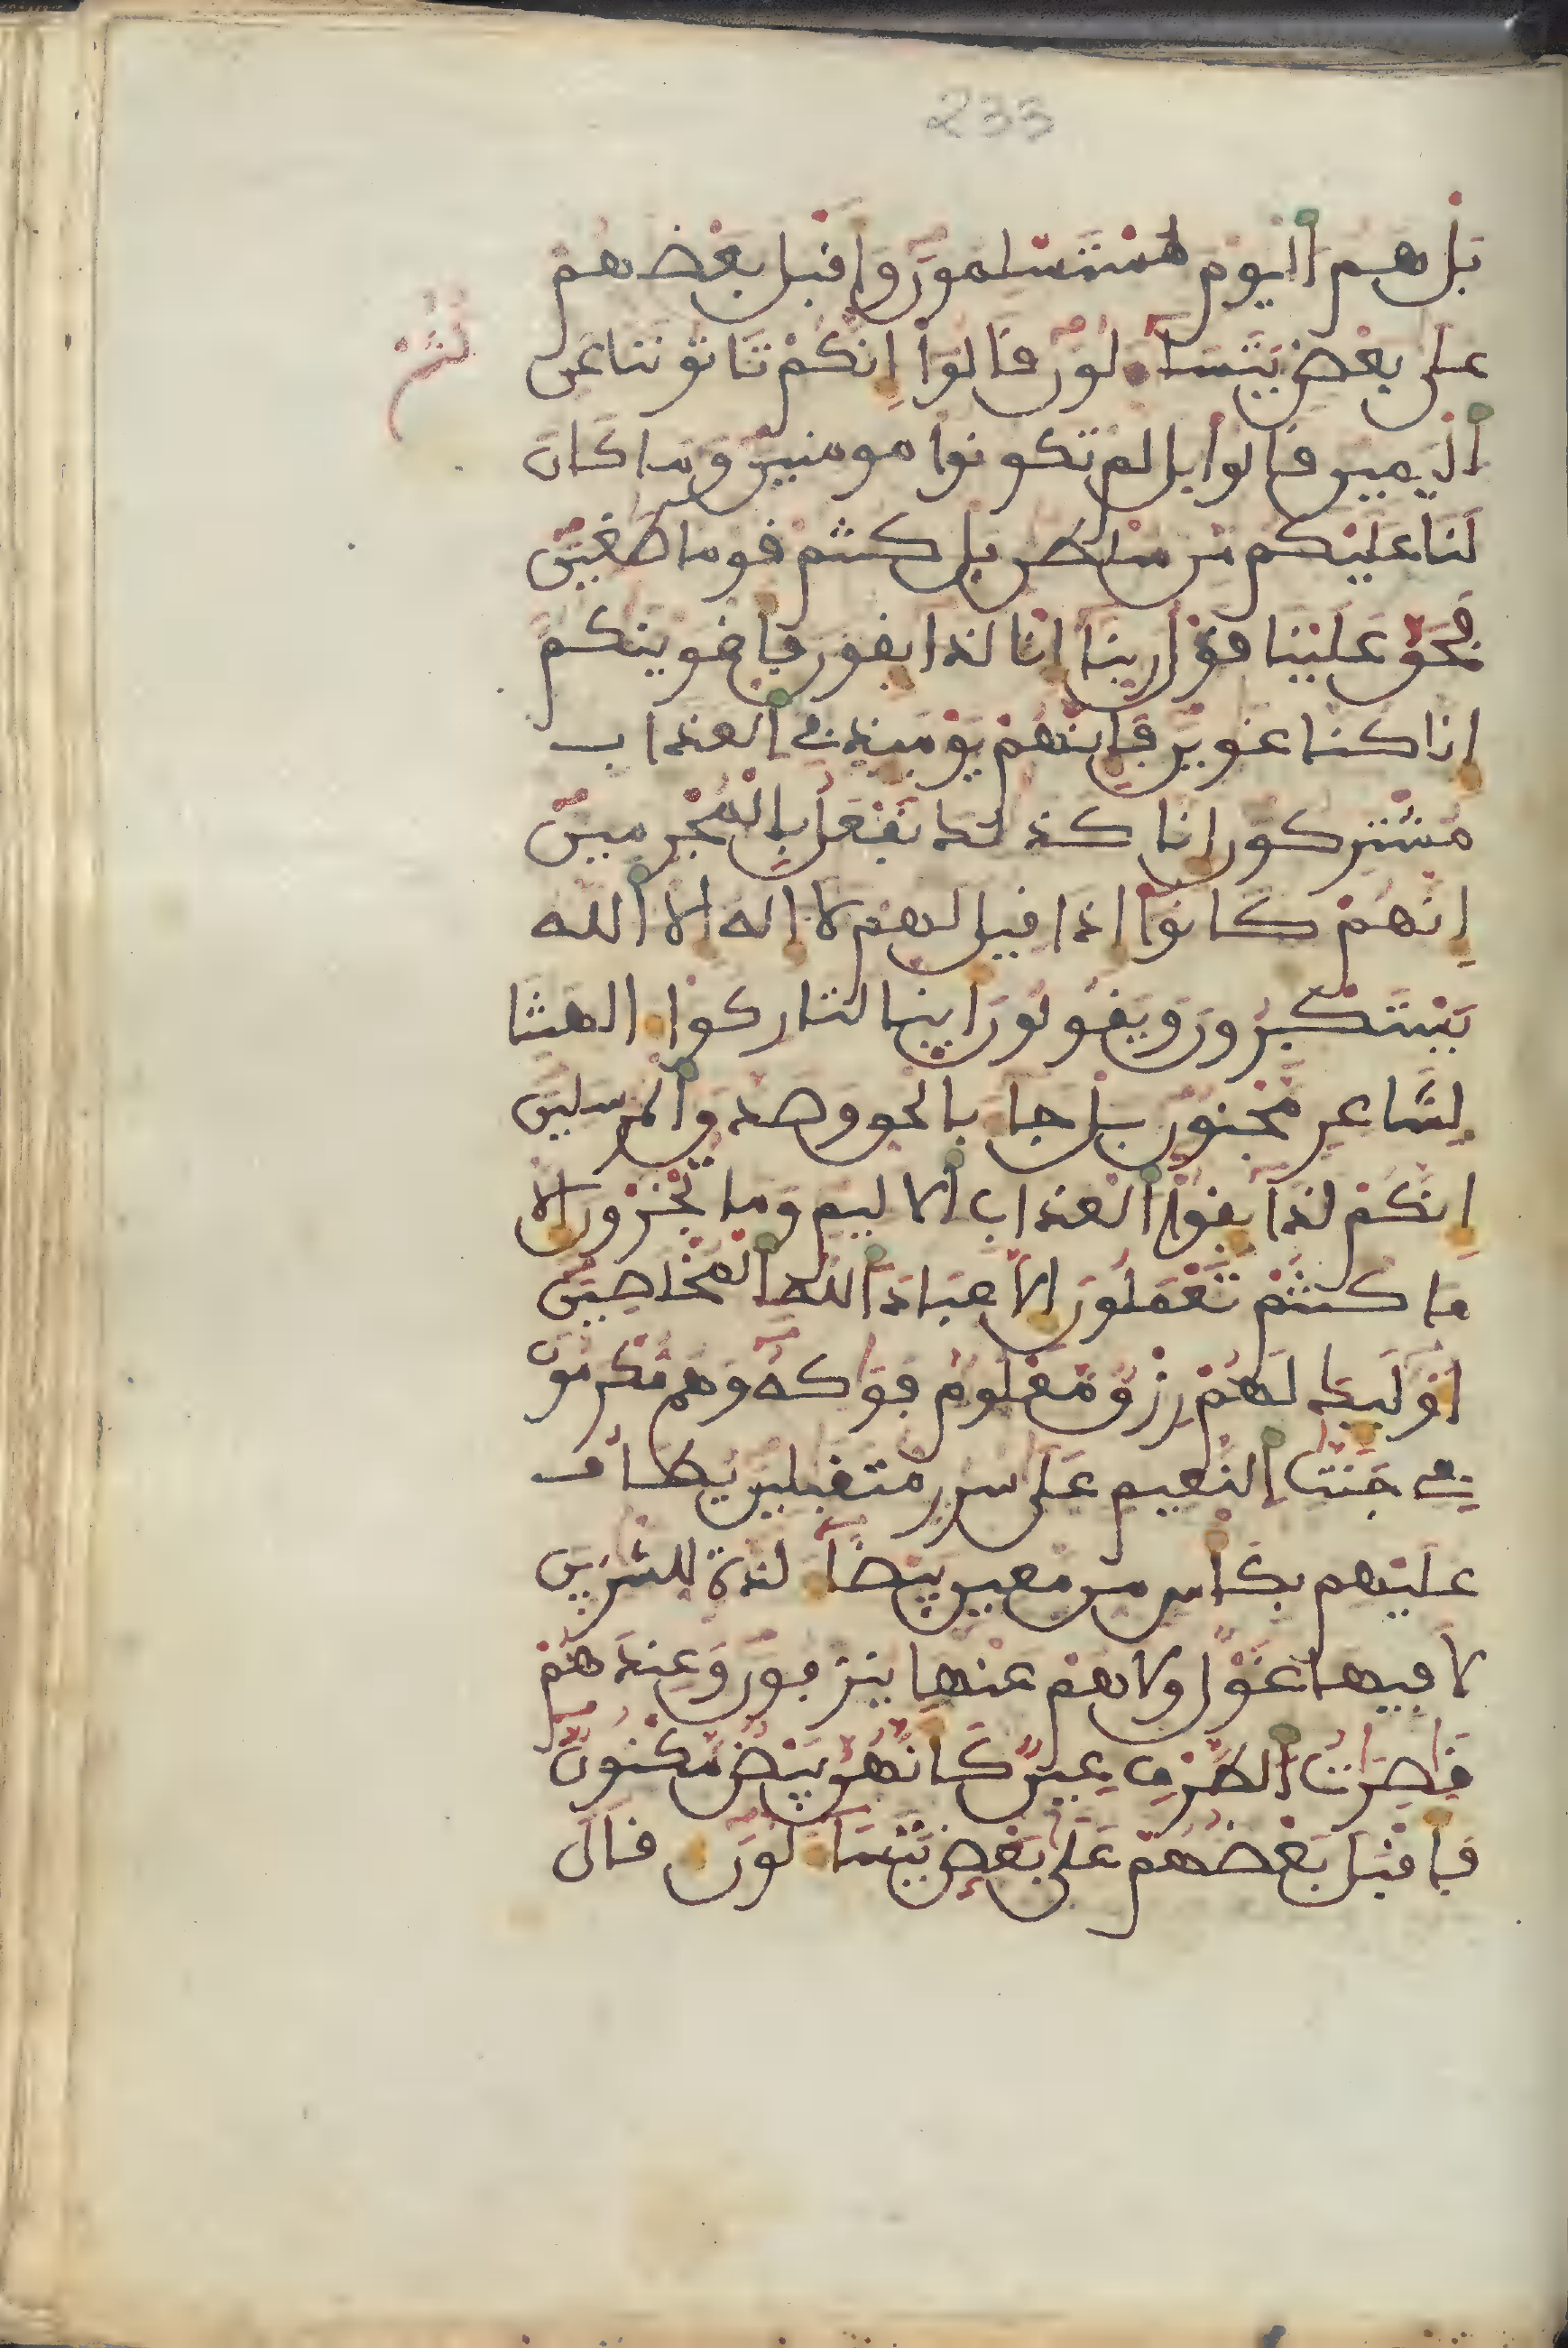 233
بل هم اليوم مستسلمون واقبل بعضهم
على بعض يتسا لون قالوا انكم تاتوننا عن
اليمين قالوا بل لم تكونوا مومنين وما كان
لنا عليكم من سلطن بل كنتم قوما طغين
فحق علينا قول ربنا انا لذايقون فاغوينكم
انا كنا غوين فانهم يوميذ في العذاب
مشتركون انا كذلك نفعل بالمجرمين
انهم كانوا اذا قيل لهم لا اله الا الله
يستكبرون ويقولون اينا لتاركوا الهتنا
لشاعر مجنون بل جا بالحق وصدق المرسلين
انكم لذايقوا العذاب الاليم وما تجزون الا
ما كنتم تعملون الا عباد الله المخلصين
اوليك لهم رزق معلوم فواكه وهم مكرمون
في جنت النعيم على سرر متقبلين يطاف
عليهم بكاس من معين بيضا لذة للشربين
لا فيها غول ولا هم عنها ينزفون وعندهم
قاصرات الطرف عين كانهن بيض مكنون
فاقبل بعضهم على بعض يتسا لون قال